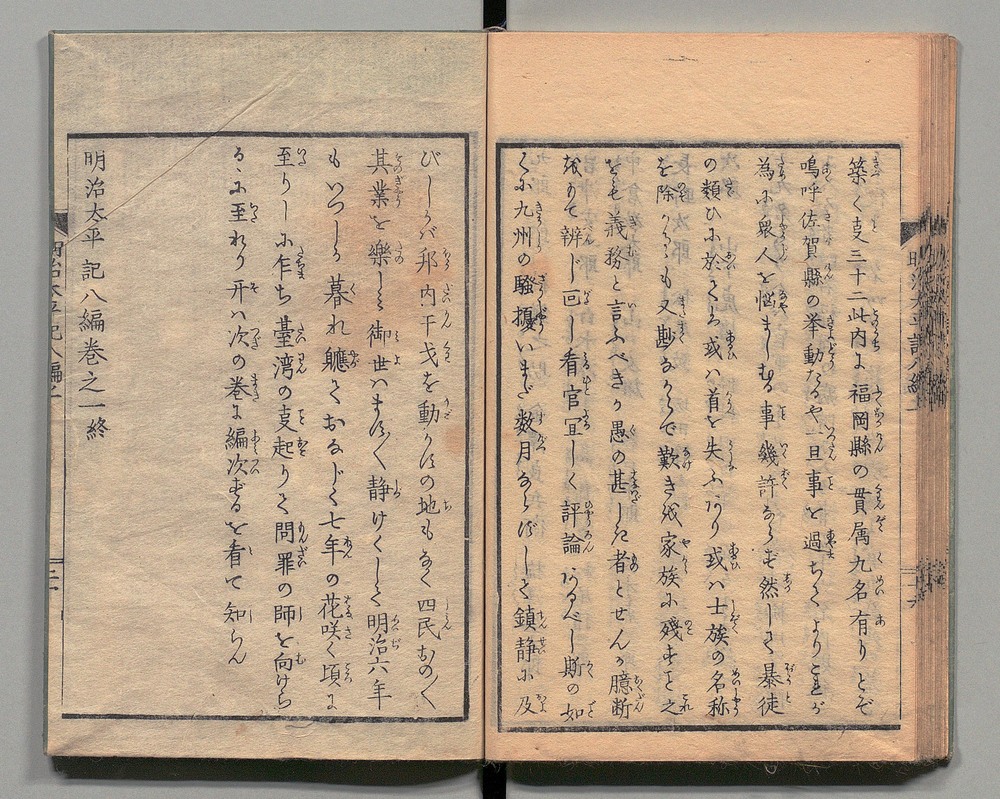 築く支三十二此内に福岡縣の貫属九名有りとぞ
嗚呼佐賀縣の挙動たるや一旦事を過ちしより之が
為に衆人を悩ましむる事幾許ならず然して暴徒
の類ひに於ける或は首を失ふあり或は士族の名称
を除かるゝも又尠なからで歎き成家族に残すとこ之
をも義務と言ふべきか愚の甚しき者とせんか臆断
をもて辨じ回し看官宜しく評論あるべし斯の如
くに九州の騒擾いまだ数月ならずして鎮静に及
びしかば邦内干戈を動かすの地もなく四民おの〱
其業を樂しみ御世はます〱静けくして明治六年
もいつしか暮れ軈ておなじく七年の花咲く頃に
至りしに乍ち臺湾の事起りて問罪の師を向けら
るゝに至れり开は次の巻に編次するを看て知らん
明治太平記八編巻之一終